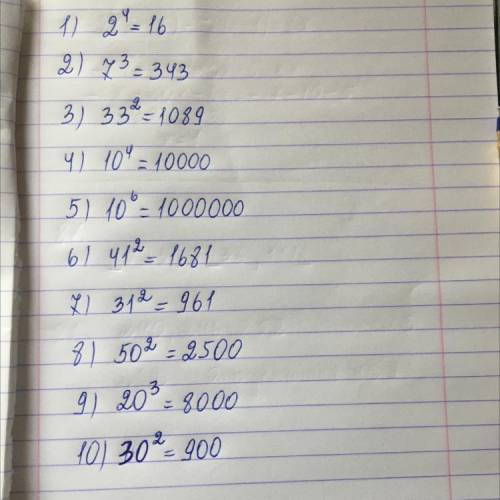 1) 2⁴ = 16
2) 7³ = 343
3) 33² = 1089
4) 10⁴ = 10000
5) 10⁶ = 1000000
6) 41² = 1681
7) 31² = 961
8) 50² = 2500
9) 20³ = 8000
10) 30² = 900